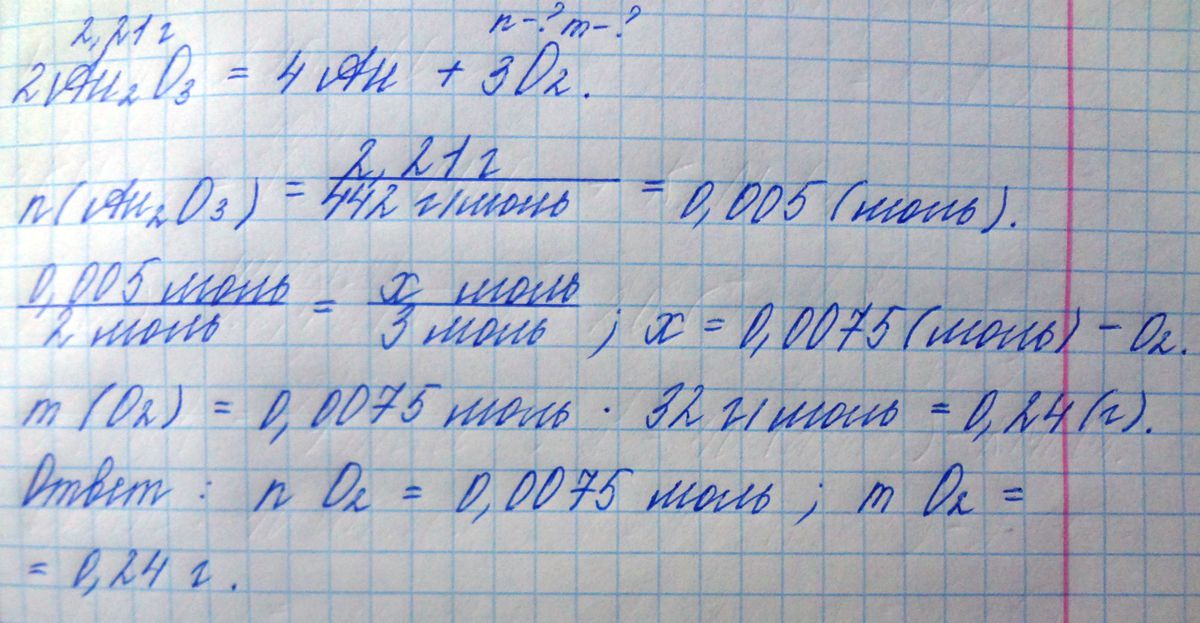 2,21г n-? m-?
2Au₂O₃ = 4Au + 3O₂.
n(Au₂O₃) = 2,21г / 442 г/моль = 0,005 (моль).
0,005 моль / 2 моль = x моль / 3 моль ; x = 0,0075 (моль) - O₂.
m (O₂) = 0,0075 моль · 32 г/моль = 0,24 (г).
Ответ : n O₂ = 0,0075 моль ; m O₂ =
= 0,24 г .